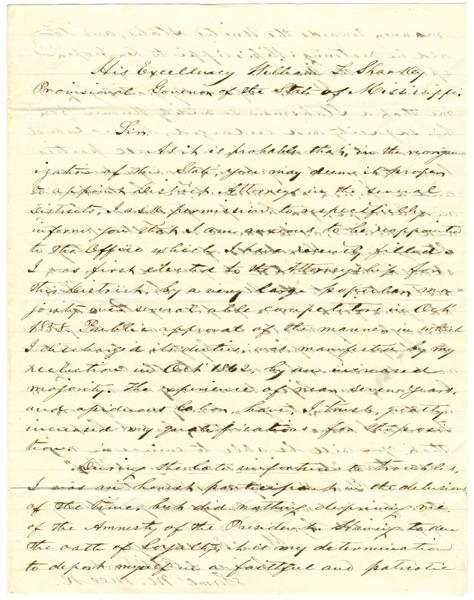 His Excellency William L. Sharkey
Provisional Governor of the State of Mississippi.
Sir.
As it is probable that, in the reorgan
ization of the State, you may deem it proper
to appoint District Attorneys in the several
Districts, I ask permission to respectfully
inform you that I am anxious to be reappointed
to the Office which I have recently filled.
I was first elected to the Attorneyship for
this District, by a very large popular ma
jority over several able competitors in Oct
1858. Public approval of the manner in which
I discharged its duties, was manifested by my
reelection in Oct 1862, by an increased
majority. The experience of near seven years,
and assiduous labor, have, I trust, greatly
increased my qualifications for the posi
tion.
During the late unfortunate troubles,
I was an honest participant in the delusions
of the times, but did nothing depriving me
of the Amnesty of the President. Having taken
the oath of Loyalty, it is my determination
to deport myself in a faithful and patriotic